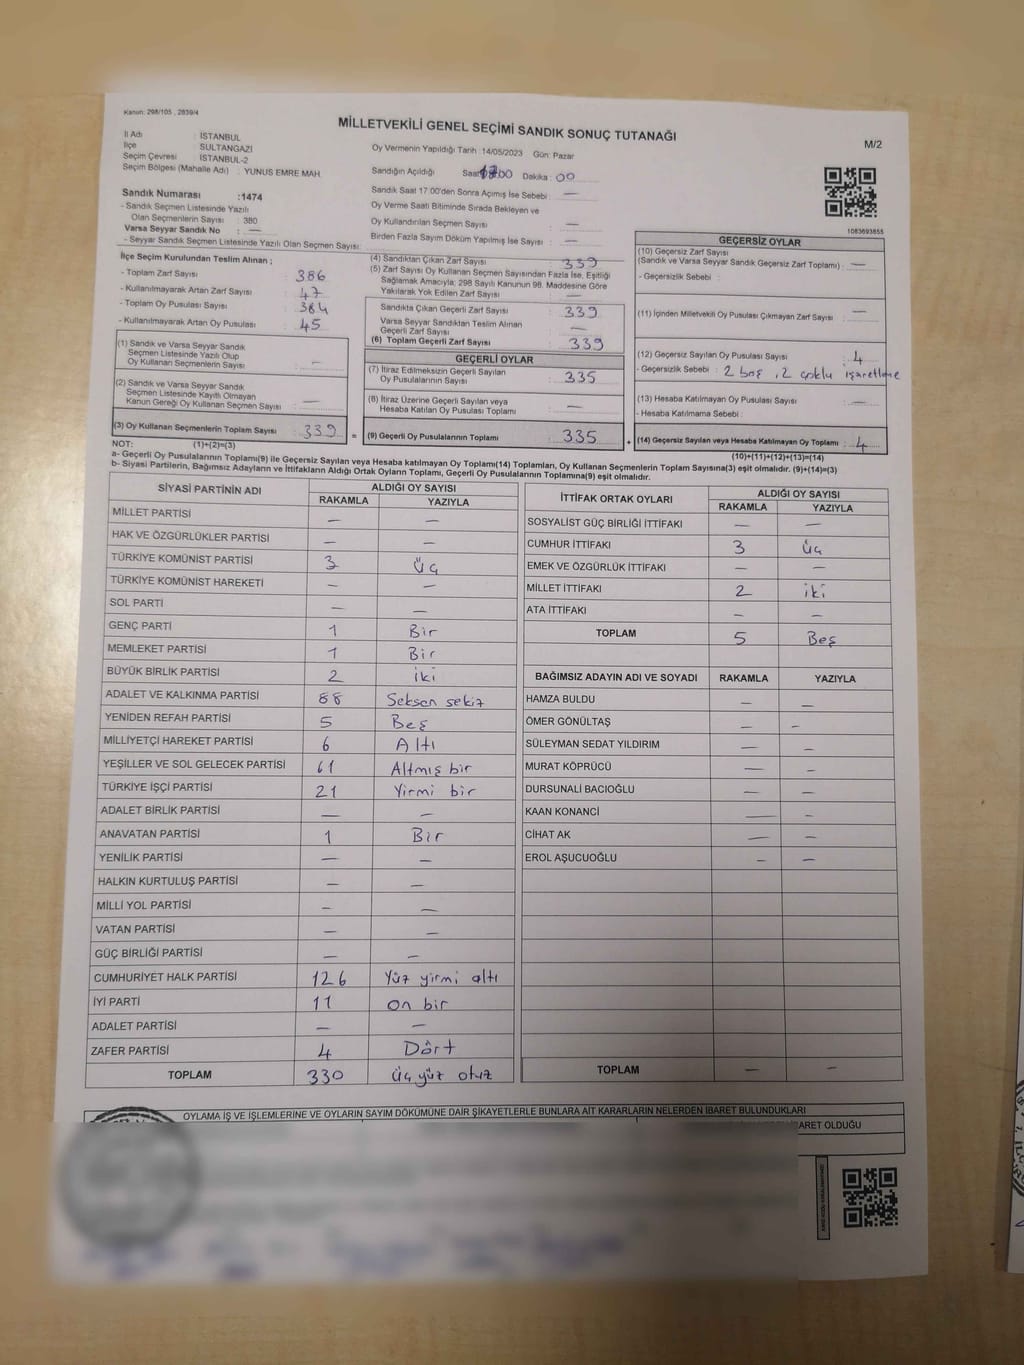 Kanun: 298/105 , 2839/4
MİLLETVEKİLİ GENEL SEÇİMİ SANDIK SONUÇ TUTANAĞI
M/2
İl Adı : İSTANBUL
İlçe : SULTANGAZİ
Seçim Çevresi : İSTANBUL-2
Seçim Bölgesi (Mahalle Adı) : YUNUS EMRE MAH.
Sandık Numarası :1474
- Sandık Seçmen Listesinde Yazılı
Olan Seçmenlerin Sayısı : 380
Varsa Seyyar Sandık No : —
- Seyyar Sandık Seçmen Listesinde Yazılı Olan Seçmen Sayısı:
Oy Vermenin Yapıldığı Tarih :14/05/2023 Gün: Pazar
Sandığın Açıldığı Saat: :00 Dakika : 00
Sandık Saat 17:00'den Sonra Açılmış İse Sebebi : —
Oy Verme Saati Bitiminde Sırada Bekleyen ve
Oy Kullandırılan Seçmen Sayısı : —
Birden Fazla Sayım Döküm Yapılmış İse Sayısı : —
1083693855
İlçe Seçim Kurulundan Teslim Alınan ;
- Toplam Zarf Sayısı : 386
- Kullanılmayarak Artan Zarf Sayısı : 47
- Toplam Oy Pusulası Sayısı : 384
- Kullanılmayarak Artan Oy Pusulası : 45
(1) Sandık ve Varsa Seyyar Sandık
Seçmen Listesinde Yazılı Olup
Oy Kullanan Seçmen Sayısı : —
(2) Sandık ve Varsa Seyyar Sandık
Seçmen Listesinde Kayıtlı Olmayan
Kanun Gereği Oy Kullanan Seçmen Sayısı : —
(3) Oy Kullanan Seçmenlerin Toplam Sayısı : 339
(4) Sandıktan Çıkan Zarf Sayısı : 339
(5) Zarf Sayısı Oy Kullanan Seçmen Sayısından Fazla İse, Eşitliği
Sağlamak Amacıyla; 298 Sayılı Kanunun 98. Maddesine Göre
Yakılarak Yok Edilen Zarf Sayısı : —
Sandıkta Çıkan Geçerli Zarf Sayısı : 339
Varsa Seyyar Sandıktan Teslim Alınan
Geçerli Zarf Sayısı : —
(6) Toplam Geçerli Zarf Sayısı : 339
GEÇERLİ OYLAR
(7) İtiraz Edilmeksizin Geçerli Sayılan
Oy Pusulalarının Sayısı : 335
(8) İtiraz Üzerine Geçerli Sayılan veya
Hesaba Katılan Oy Pusulası Toplamı : —
= (9) Geçerli Oy Pusulalarının Toplamı : 335
GEÇERSİZ OYLAR
(10) Geçersiz Zarf Sayısı
(Sandık ve Varsa Seyyar Sandık Geçersiz Zarf Toplamı) : —
- Geçersizlik Sebebi :
(11) İçinden Milletvekili Oy Pusulası Çıkmayan Zarf Sayısı : —
(12) Geçersiz Sayılan Oy Pusulası Sayısı : 4
- Geçersizlik Sebebi : 2 boş , 2 çoklu işaretleme
(13) Hesaba Katılmayan Oy Pusulası Sayısı : —
- Hesaba Katılmama Sebebi :
+ (14) Geçersiz Sayılan veya Hesaba Katılmayan Oy Toplamı : 4
NOT: (1)+(2)=(3)
(10)+(11)+(12)+(13)=(14)
a- Geçerli Oy Pusulalarının Toplamı(9) ile Geçersiz Sayılan veya Hesaba Katılmayan Oy Toplamı(14) Toplamları, Oy Kullanan Seçmenlerin Toplam Sayısına(3) eşit olmalıdır. (9)+(14)=(3)
b- Siyasi Partilerin, Bağımsız Adayların ve İttifakların Aldığı Ortak Oyların Toplamı, Geçerli Oy Pusulalarının Toplamına(9) eşit olmalıdır.
SİYASİ PARTİNİN ADI ALDIĞI OY SAYISI
RAKAMLA YAZIYLA
MİLLET PARTİSİ — —
HAK VE ÖZGÜRLÜKLER PARTİSİ — —
TÜRKİYE KOMÜNİST PARTİSİ 3 Üç
TÜRKİYE KOMÜNİST HAREKETİ — —
SOL PARTİ — —
GENÇ PARTİ 1 Bir
MEMLEKET PARTİSİ 1 Bir
BÜYÜK BİRLİK PARTİSİ 2 iki
ADALET VE KALKINMA PARTİSİ 88 Seksen sekiz
YENİDEN REFAH PARTİSİ 5 Beş
MİLLİYETÇİ HAREKET PARTİSİ 6 Altı
YEŞİLLER VE SOL GELECEK PARTİSİ 61 Altmış bir
TÜRKİYE İŞÇİ PARTİSİ 21 Yirmi bir
ADALET BİRLİK PARTİSİ — —
ANAVATAN PARTİSİ 1 Bir
YENİLİK PARTİSİ — —
HALKIN KURTULUŞ PARTİSİ — —
MİLLİ YOL PARTİSİ — —
VATAN PARTİSİ — —
GÜÇ BİRLİĞİ PARTİSİ — —
CUMHURİYET HALK PARTİSİ 126 Yüz yirmi altı
İYİ PARTİ 11 on bir
ADALET PARTİSİ — —
ZAFER PARTİSİ 4 Dört
TOPLAM 330 Üç yüz otuz
İTTİFAK ORTAK OYLARI ALDIĞI OY SAYISI
RAKAMLA YAZIYLA
SOSYALİST GÜÇ BİRLİĞİ İTTİFAKI — —
CUMHUR İTTİFAKI 3 Üç
EMEK VE ÖZGÜRLÜK İTTİFAKI — —
MİLLET İTTİFAKI 2 iki
ATA İTTİFAKI — —
TOPLAM 5 Beş
BAĞIMSIZ ADAYIN ADI VE SOYADI RAKAMLA YAZIYLA
HAMZA BULDU — —
ÖMER GÖNÜLTAŞ — —
SÜLEYMAN SEDAT YILDIRIM — —
MURAT KÖPRÜCÜ — —
DURSUNALİ BACIOĞLU — —
KAAN KONANCİ — —
CİHAT AK — —
EROL AŞUCUOĞLU — —
TOPLAM — —
OYLAMA İŞ VE İŞLEMLERİNE VE OYLARIN SAYIM DÖKÜMÜNE DAİR ŞİKAYETLERLE BUNLARA AİT KARARLARIN NELERDEN İBARET BULUNDUKLARI
OLDUĞU